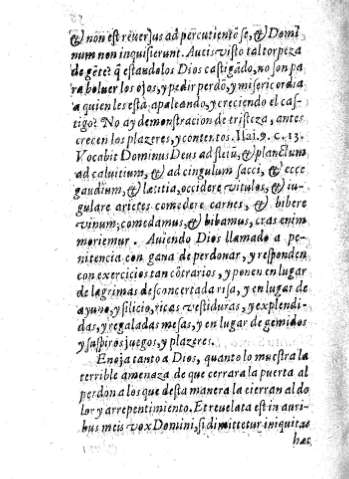 & non est reuersus ad percutientẽ se, & Domi
num non inquisierunt. Aueis visto tal torpeza
de gẽte? q̃ estandolos Dios castigãdo, no son pa
ra boluer los ojos, y pedir perdõ, y misericordia
a quien les està apaleando, y creciendo el cas-
tigo? No ay demonstracion de tristeza, antes
crecen los plazeres, y contentos. Isai. 9. c. 13.
Vocabit Dominus Deus ad fletũ, & planctum
ad caluitium, & ad cingulum sacci, & ecce
gaudium, & lætitia, occidere vitulos, & iu-
gulare arietes comedere carnes, & bibere
vinum; comedamus, & bibamus, cras enim
moriemur. Auiendo Dios llamado a pe-
nitencia con gana de perdonar, y responden
con exercicios tan cõtrarios, y ponen en lugar
de lagrimas desconcertada risa, y en lugar de
ayuno, y silicio, ricas vestiduras, y explendi-
das, y regaladas mesas, y en lugar de gemidos
y suspiros juegos, y plazeres.
Enoja tanto a Dios, quanto lo muestra la
terrible amenaza de que cerrara la puerta al
perdon a los que desta manera la cierran al do
lor y arrepentimiento. Et reuelata est in auri-
bus meis vox Domini, si dimittetur iniquitas
hæc